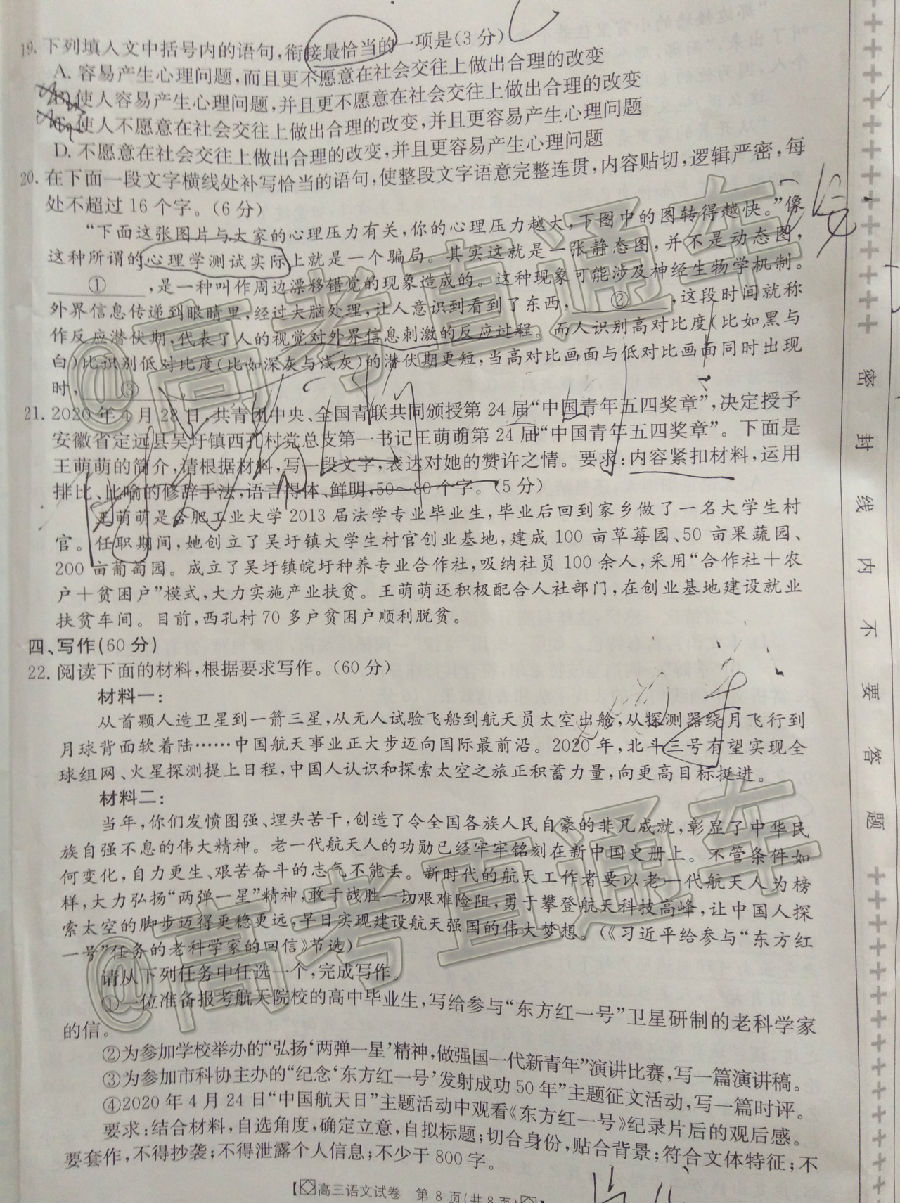 19. 下列填入文中括号内的语句,衔接最恰当的一项是(3分)
A. 容易产生心理问题,而且更不愿意在社会交往上做出合理的改变
使人容易产生心理问题,并且更不愿意在社会交往上做出合理的改变
使人不愿意在社会交往上做出合理的改变,并且更容易产生心理问题
D. 不愿意在社会交往上做出合理的改变,并且更容易产生心理问题
20. 在下面一段文字横线处补写恰当的语句,使整段文字语意完整连贯,内容贴切,逻辑严密,每
处不超过16个字。(6分)
“下面这张图片与大家的心理压力有关,你的心理压力越大,下图中的图转得越快。”像
这种所谓的心理学测试实际上就是一个骗局。其实这就是一张静态图,并不是动态图,
①,是一种叫作周边漂移错觉的现象造成的。这种现象可能涉及神经生物学机制。
外界信息传递到眼睛里,经过大脑处理,让人意识到看到了东西,②,这段时间就称
作反应潜伏期,代表了人的视觉对外界信息刺激的反应过程。而人识别高对比度(比如黑与
白)比识别低对比度(比如深灰与浅灰)的潜伏期更短,当高对比画面与低对比画面同时出现
时,③
21. 2020年4月28日,共青团中央、全国青联共同颁授第24届“中国青年五四奖章”,决定授予
安徽省定远县吴圩镇西孔村党总支第一书记王萌萌第24届“中国青年五四奖章”。下面是
王萌萌的简介,请根据材料,写一段文字,表达对她的赞许之情。要求:内容紧扣材料,运用
排比、比喻的修辞手法,语言得体、鲜明,50~80个字。(5分)
王萌萌是合肥工业大学2013届法学专业毕业生,毕业后回到家乡做了一名大学生村
官。任职期间,她创立了吴圩镇大学生村官创业基地,建成100亩草莓园、50亩果蔬园、
200亩葡萄园。成立了吴圩镇皖圩种养专业合作社,吸纳社员100余人,采用“合作社+农
户+贫困户”模式,大力实施产业扶贫。王萌萌还积极配合人社部门,在创业基地建设就业
扶贫车间。目前,西孔村70多户贫困户顺利脱贫。
四、写作(60分)
22. 阅读下面的材料,根据要求写作。(60分)
材料一:
从首颗人造卫星到一箭三星,从无人试验飞船到航天员太空出舱,从探测器绕月飞行到
月球背面软着陆……中国航天事业正大步迈向国际最前沿。2020年,北斗三号有望实现全
球组网、火星探测提上日程,中国人认识和探索太空之旅正积蓄力量,向更高目标挺进。
材料二:
当年,你们发愤图强、埋头苦干,创造了令全国各族人民自豪的非凡成就,彰显了中华民
族自强不息的伟大精神。老一代航天人的功勋已经牢牢铭刻在新中国史册上。不管条件如
何变化,自力更生、艰苦奋斗的志气不能丢。新时代的航天工作者要以老一代航天人为榜
样,大力弘扬“两弹一星”精神,敢于战胜一切艰难险阻,勇于攀登航天科技高峰,让中国人探
索太空的脚步迈得更稳更远,早日实现建设航天强国的伟大梦想。(《习近平给参与“东方红
一号”任务的老科学家的回信》节选)
请从下列任务中任选一个,完成写作。
①一位准备报考航天院校的高中毕业生,写给参与“东方红一号”卫星研制的老科学家
的信。
②为参加学校举办的“弘扬‘两弹一星’精神,做强国一代新青年”演讲比赛,写一篇演讲稿。
③为参加市科协主办的“纪念‘东方红一号’发射成功50年”主题征文活动,写一篇时评。
④2020年4月24日“中国航天日”主题活动中观看《东方红一号》纪录片后的观后感。
要求:结合材料,自选角度,确定立意,自拟标题;切合身份,贴合背景;符合文体特征;不
要套作,不得抄袭;不得泄露个人信息;不少于800字。
高三语文试卷 第8页(共8页)
密封线内不要答题
@高考直通车
@高考直通车